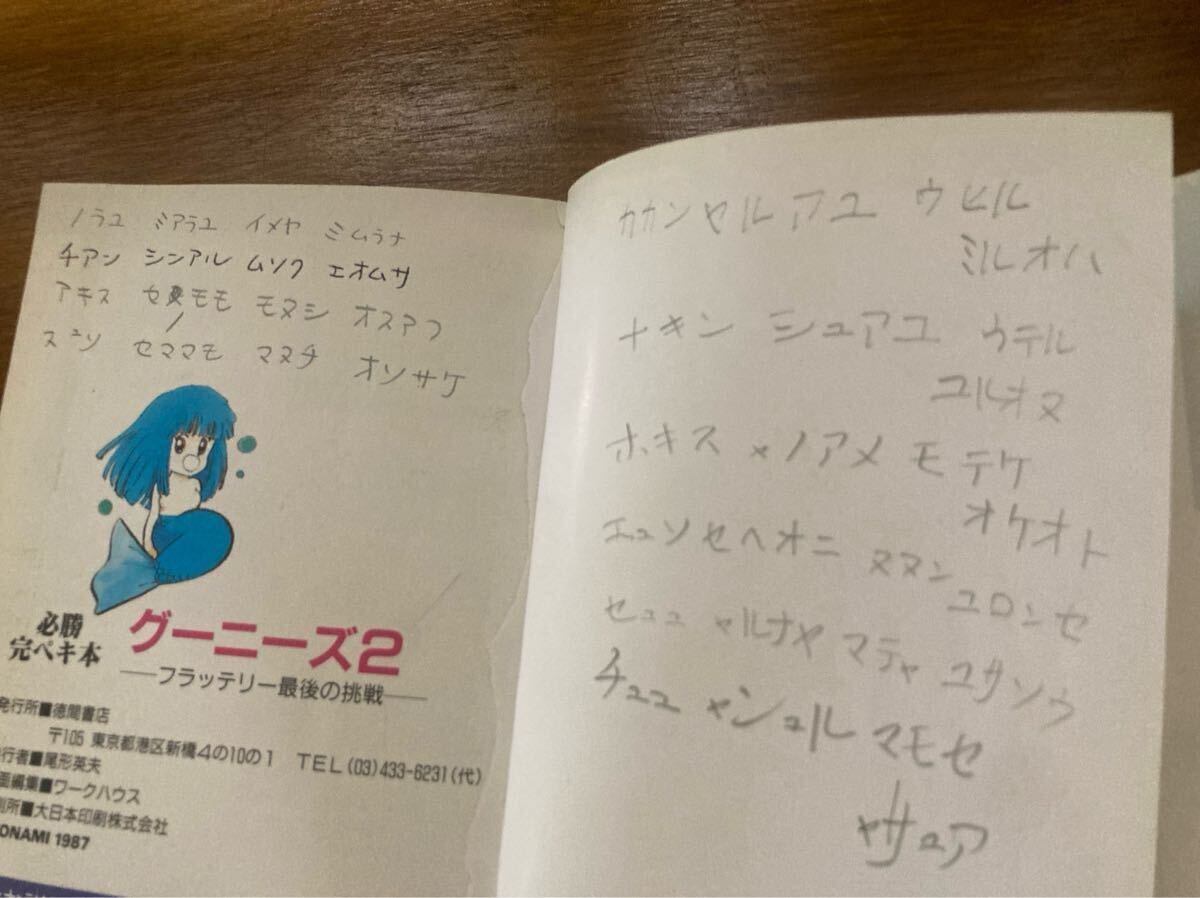 ノラユ ミアラユ イメヤ ミムラナ
チアン シンアル ムソク エオムサ
アキス セ モモ モヌシ オスアフ
スユソ セママモ マヌチ オソサケ
必勝
完ペキ本
グーニーズ2
──フラッテリー最後の挑戦──
発行所■徳間書店
〒105 東京都港区新橋4の10の1 TEL(03)433-6231(代)
行者■尾形英夫
画編集■ワークハウス
刷所■大日本印刷株式会社
ONAMI 1987
カカンセルアユ ウヒル
ミルオハ
ナキン シュアユ ウテル
ユルオヌ
ホキス メノアメ モテケ
オケオト
エュソセヘオニ ヌヌン
ユロンセ
セユユ ャルナメ マテャ ユサソウ
チユユ ャンュル マモセ
ャサュア